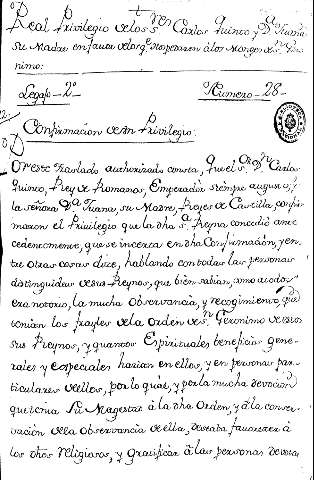 Real Privilegio de los S.res Carlos Quinto y D.a Juana
su Madre en favor de los q.e hospedaren à los Monges de S.n Gero-
nimo:
Legajo - 2.o Numero - 28 -
Confirmacion de un Privilegio:
Por este Traslado authorizado consta, que el S.or D.n Carlos
Quinto, Rey de Romanos, Emperador siempre augusto, y
la señora D.a Juana, su Madre, Reyes de Castilla confir
maron el Privilegio que la dha S.a Reyna concedió ante
cedentemente, que se incerta en dha Confirmacion, y en-
tre otras cosas dice, hablando con todas las personas
distinguidas de sus Reynos, que bien sabian, como à todos
era notorio, la mucha observancia, y recogimiento que
tenian los frayles de la Orden de S.n Geronimo de estos
sus Reynos, y quantos Espirituales beneficios gene-
rales y especiales hacian en ellos, y en personas par-
ticulares de ellos, por lo qual, y por la mucha devocion
que tenia Su Magestad à la dha Orden, y à la conser-
vacion de la observancia de ella, deseaba favorecer à
los dhos religiosos, y gratificar à las personas devotas